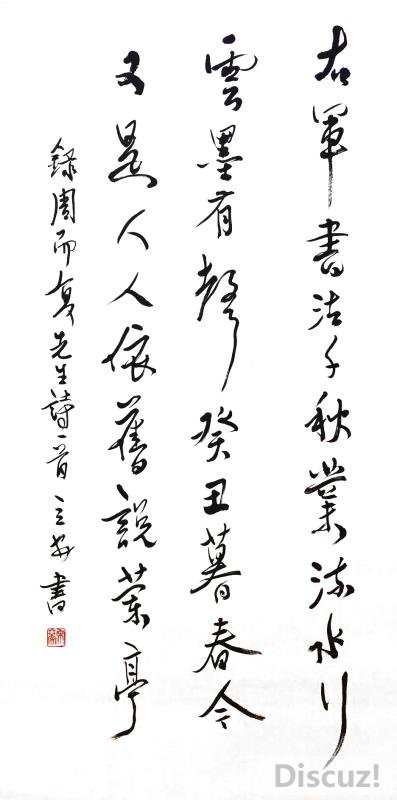 右軍書法千秋業流水行
雲墨有聲癸丑暮春今
又是人人依舊說蘭亭
錄周而复先生詩一首立安書
Discuz!